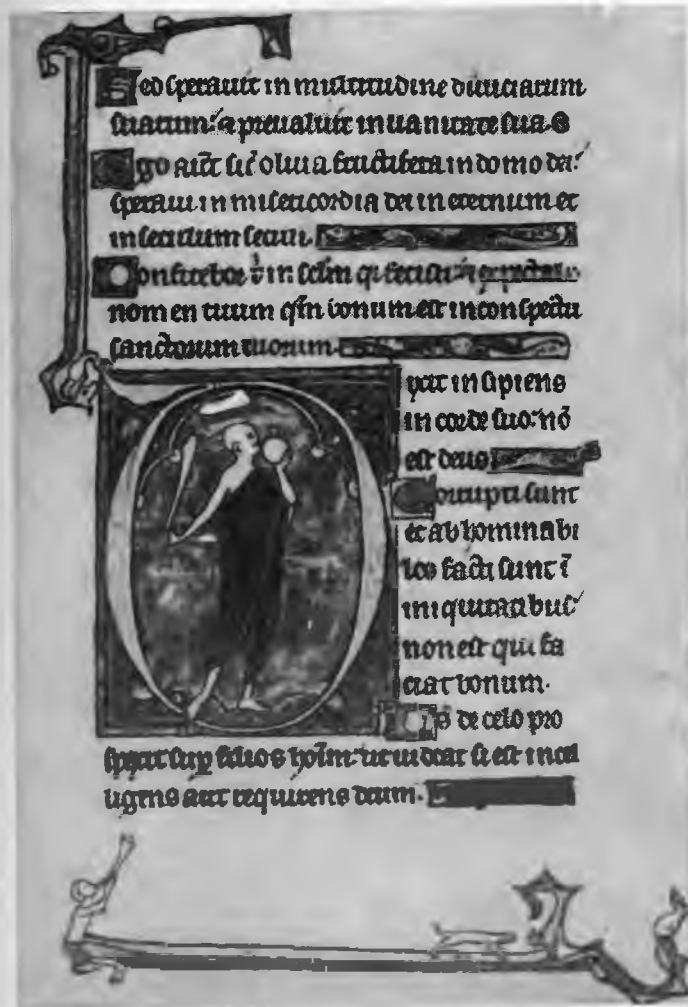 Sed sperauit in multitudine diuiciarum
suarum: ⁊ preualuit in uanitate sua.
Ego aut̄ sic̄ oliua fructifera in domo dei:
speraui in misericordia dei in eternum et
in seculum seculi.
Confitebor t̄ in sclm̄ q̄ fecisti ⁊ expectabo
nomen tuum qm̄ bonum est in conspectu
sanctorum tuorum.
ixit insipiens
in corde suo: nō
est deus
Corrupti sunt
et abhominabi
les facti sunt ī
iniquitatibus
non est qui fa
ciat bonum.
Ds de celo pro
spexit sup̱ filios hoīm: ut uideat si est intell
igens aut requirens deum.